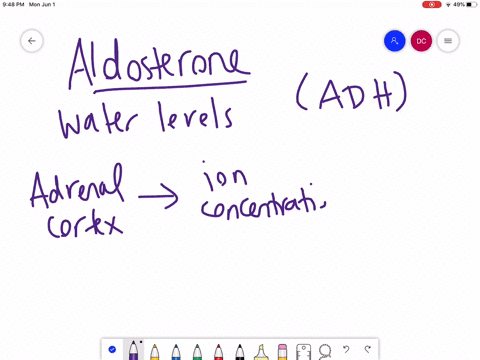 9:48 PM Mon Jun 1
49%
DC
Aldosterone
Water levels
(ADH)
Adrenal
cortex
ion
concentrati